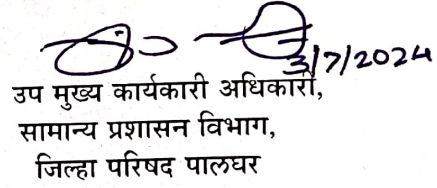 3/7/2024
उप मुख्य कार्यकारी अधिकारी,
सामान्य प्रशासन विभाग,
जिल्हा परिषद पालघर